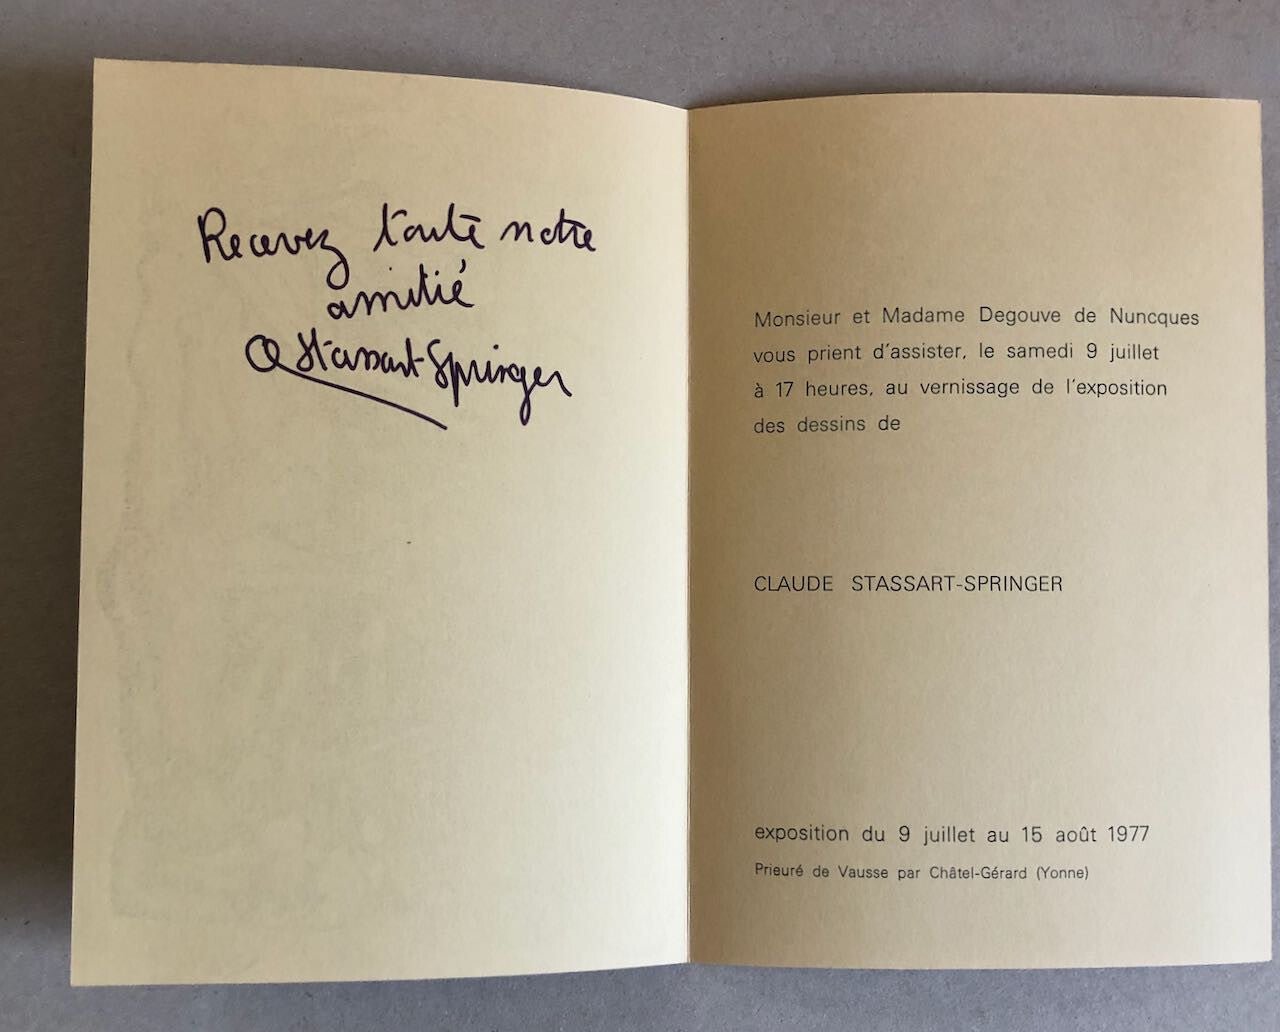 Recevez toute notre
amitié
C Stassart-Springer
Monsieur et Madame Degouve de Nuncques
vous prient d'assister, le samedi 9 juillet
à 17 heures, au vernissage de l'exposition
des dessins de
CLAUDE STASSART-SPRINGER
exposition du 9 juillet au 15 août 1977
Prieuré de Vausse par Châtel-Gérard (Yonne)